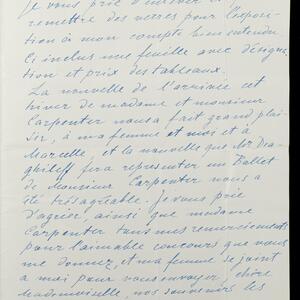 Je vous prie d'enlever et
remettre des verres pour l'exposi-
tion à mon compte bien entendu.
Ci inclus une feuille avec désigna-
tion et prix des tableaux.
La nouvelle de l'arrivée cet
hiver de madame et monsieur
Carpenter nous a fait grand plai-
sir, à ma femme et moi et à
Marcelle, et la nouvelle que Mr Dia-
ghileff fera representer un Ballet
de Monsieur Carpenter nous a
été très agréable. Je vous prie
d'agréer, ainsi que madame
Carpenter tous mes remerciements
pour l'aimable concours que vous
me donnez, et ma femme se joint
a moi pour vous envoyer, chère
Mademoiselle, nos souvenirs les